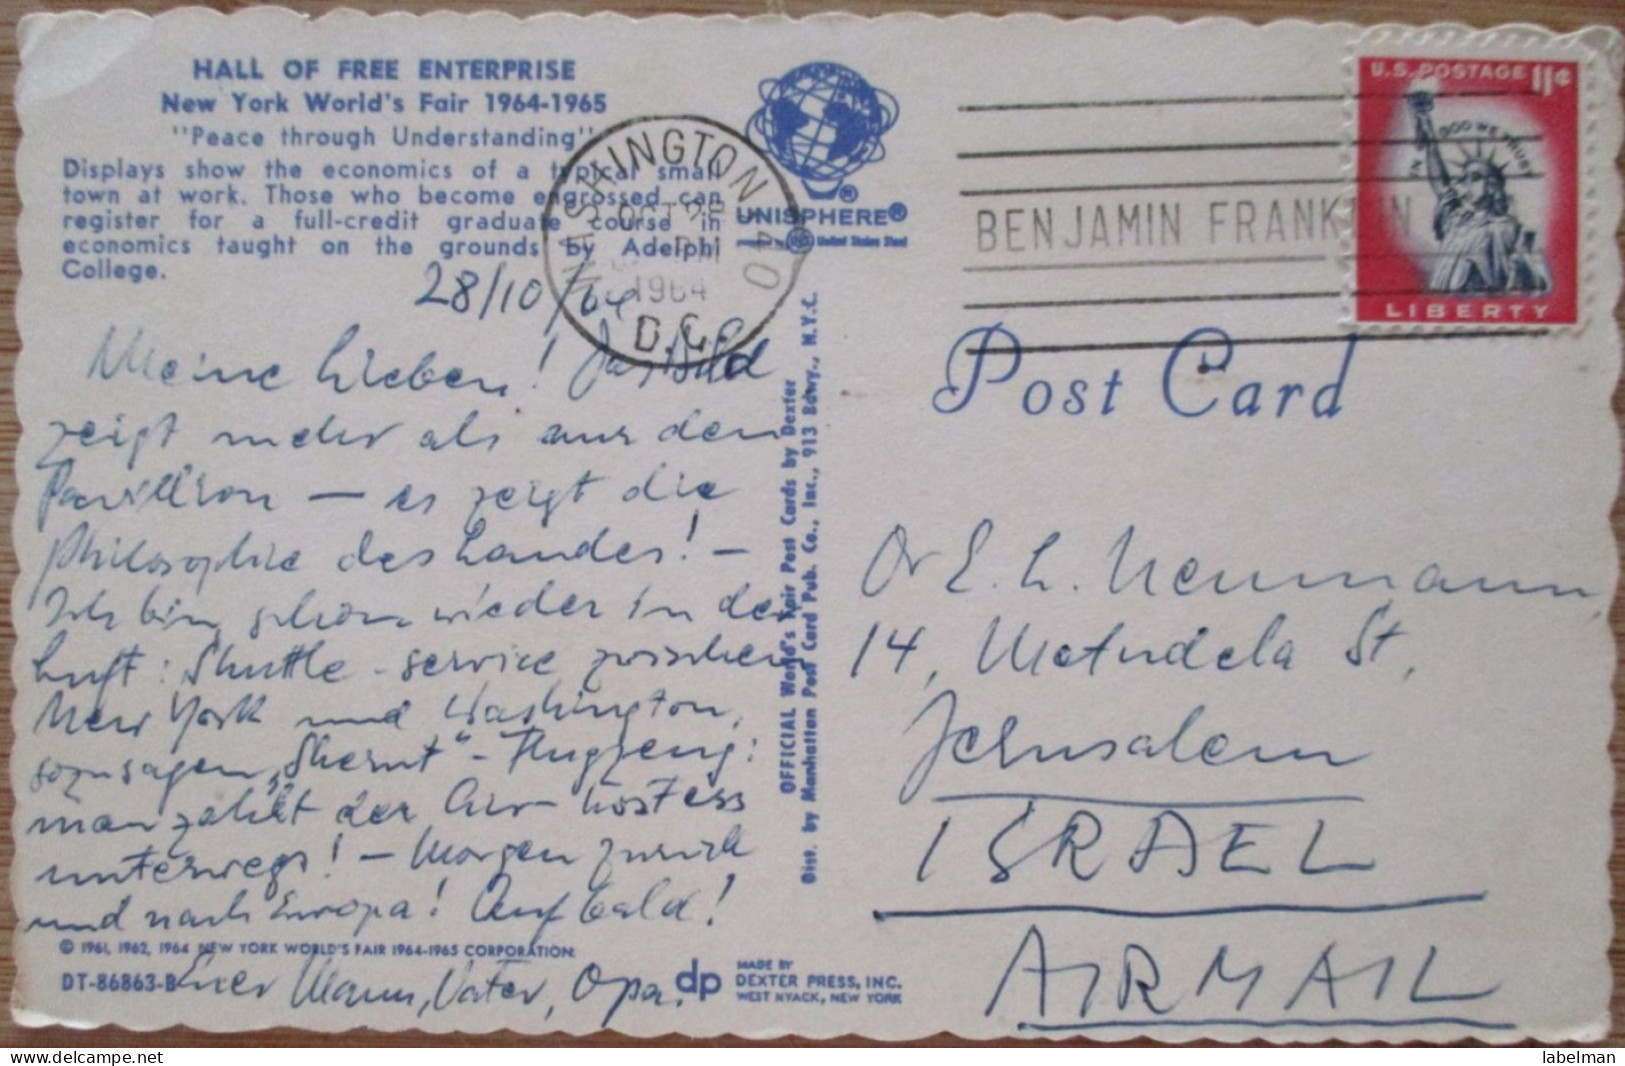 HALL OF FREE ENTERPRISE
New York World's Fair 1964-1965
"Peace through Understanding"
Displays show the economics of a typical small
town at work. Those who become engrossed can
register for a full-credit graduate course in
economics taught on the grounds by Adelphi
College.
28/10/64
Meine Lieben! Das Bild
zeigt mehr als nur den
Pavillion — es zeigt die
Philosophie des Landes! —
Ich bin schon wieder in der
Luft: Shuttle-service zwischen
New York und Washington,
sozusagen „Sherut"-Flugzeug:
man zahlt der Air-hostess
unterwegs! — Morgen zurück
und nach Europa! Auf bald!
Euer Mann, Vater, Opa.
© 1961, 1962, 1964 NEW YORK WORLD'S FAIR 1964-1965 CORPORATION
DT-86863-B
OFFICIAL World's Fair Post Cards by Dexter
Dist. by Manhattan Post Card Pub. Co., Inc., 913 Bdwy., N.Y.C.
UNISPHERE®
United States Steel
dp
MADE BY
DEXTER PRESS, INC.
WEST NYACK, NEW YORK
WASHINGTON
OCT 28
1964
D.C.
BENJAMIN FRANKLIN
U.S. POSTAGE 11¢
IN GOD WE TRUST
LIBERTY
Post Card
Dr E. L. Neumann,
14, Metudela St,
Jerusalem
ISRAEL
AIRMAIL
labelman